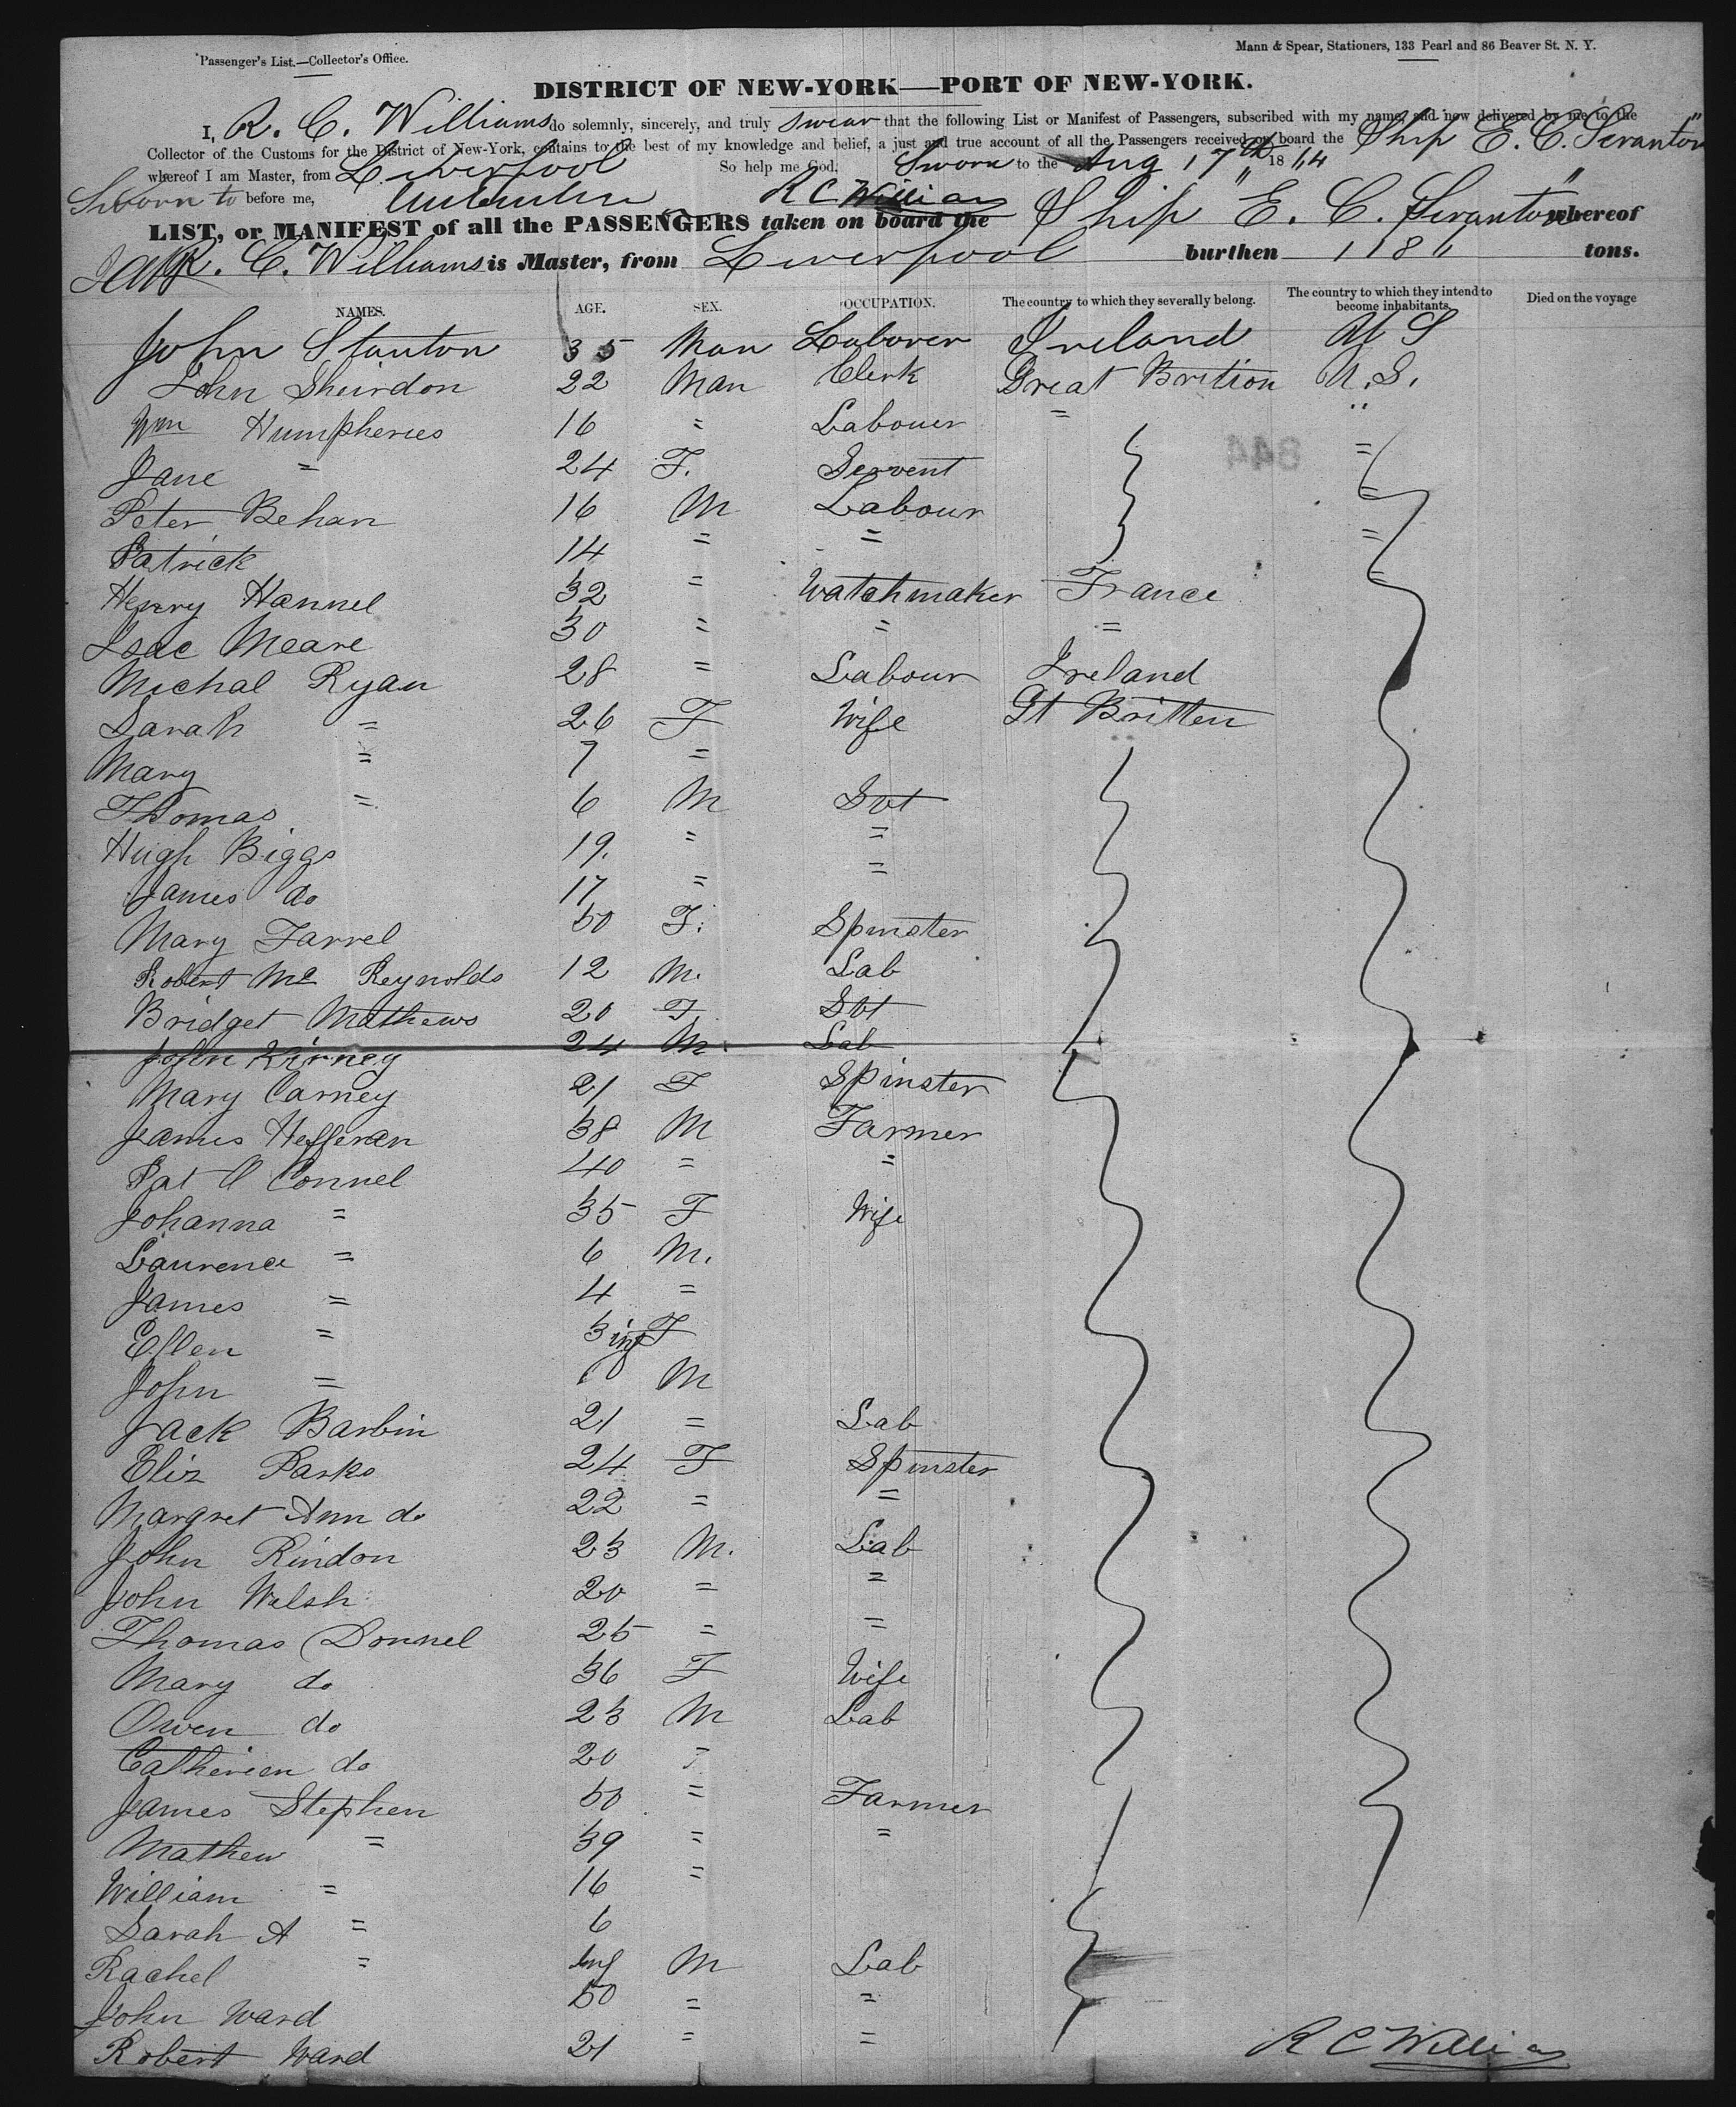 Passenger's List.—Collector's Office.
Mann & Spear, Stationers, 133 Pearl and 86 Beaver St. N. Y.
DISTRICT OF NEW-YORK—PORT OF NEW-YORK.
I, R. C. Williams do solemnly, sincerely, and truly swear that the following List or Manifest of Passengers, subscribed with my name, and now delivered by me to the
Collector of the Customs for the District of New-York, contains to the best of my knowledge and belief, a just and true account of all the Passengers received on board the Ship E. C. Scranton"
whereof I am Master, from Liverpool So help me God. Sworn to the Aug 17th 1864
Sworn to before me, R C Williams
LIST, or MANIFEST of all the PASSENGERS taken on board the Ship "E. C. Scranton" whereof
R. C. Williams is Master, from Liverpool burthen 118 tons.
NAMES. AGE. SEX. OCCUPATION. The country to which they severally belong. The country to which they intend to become inhabitants. Died on the voyage
John Stanton 35 Man Laborer Ireland U S
John Sheirdon 22 Man Clerk Great Brition U.S.
Wm Humpheries 16 = Labouer = "
Jane = 24 F. Servent =
Peter Behan 16 M Labour =
Patrick 14 = = =
Henry Hannel 32 = Watchmaker France =
Isac Meare 30 = = =
Michal Ryan 28 = Labour Ireland
Sarah = 26 F Wife Gt Britten
Mary = 7 =
Thomas = 6 M Svt
Hugh Biggs 19. = =
James do 17 = =
Mary Farrel 50 F. Spinster
Robert Mc Reynolds 12 M. Lab
Bridget Mathews 20 F Svt
John Kirney 24 M. Lab
Mary Carney 21 F Spinster
James Hefferan 38 M Farmer
Pat O Connel 40 = =
Johanna = 35 F Wife
Laurence = 6 M.
James = 4 =
Ellen = 3 F
John = inf M
Jack Barbin 21 = Lab
Eliz Parks 24 F Spinster
Margret Ann do 22 = =
John Rindon 23 M. Lab
John Welsh 20 = =
Thomas Donnel 25 = =
Mary do 36 F Wife
Owen do 23 M Lab
Catherien do 20 =
James Stephen 50 = Farmer
Mathew = 39 = =
William = 16 =
Sarah A = 6
Rachel = inf M Lab
John Ward 50 = =
Robert Ward 21 = =
R C Williams